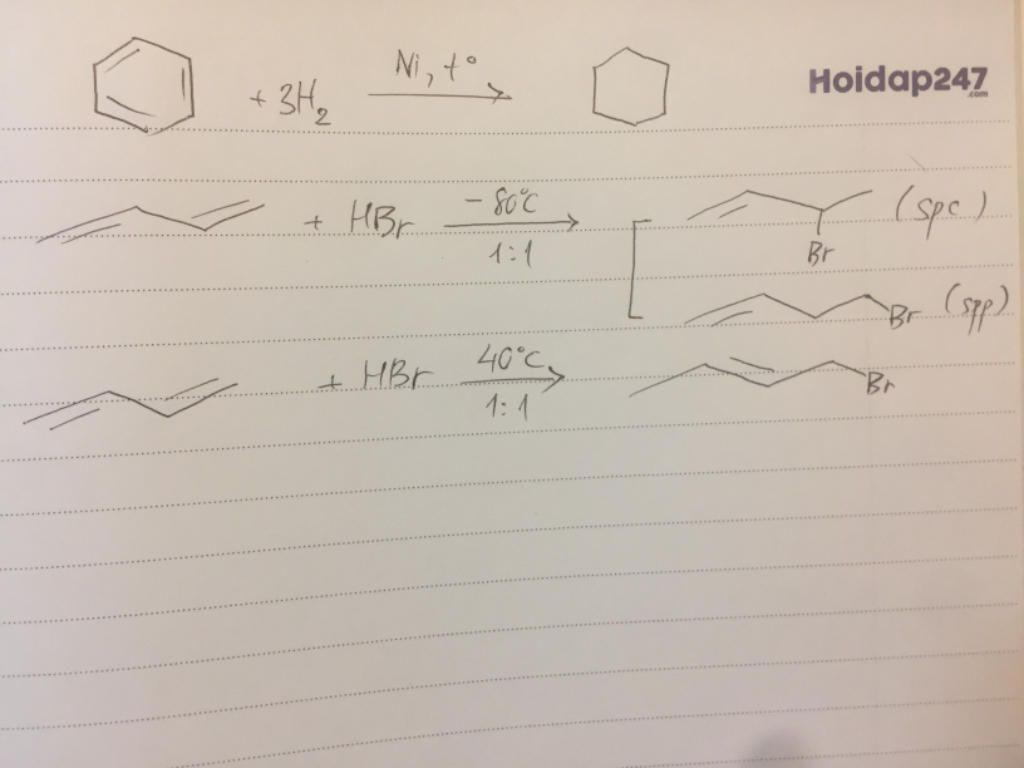 + 3H₂ Ni, t° Hoidap247
.com
+ HBr -80°C (spc)
1:1 Br
Br (spp)
+ HBr 40°C Br
1:1